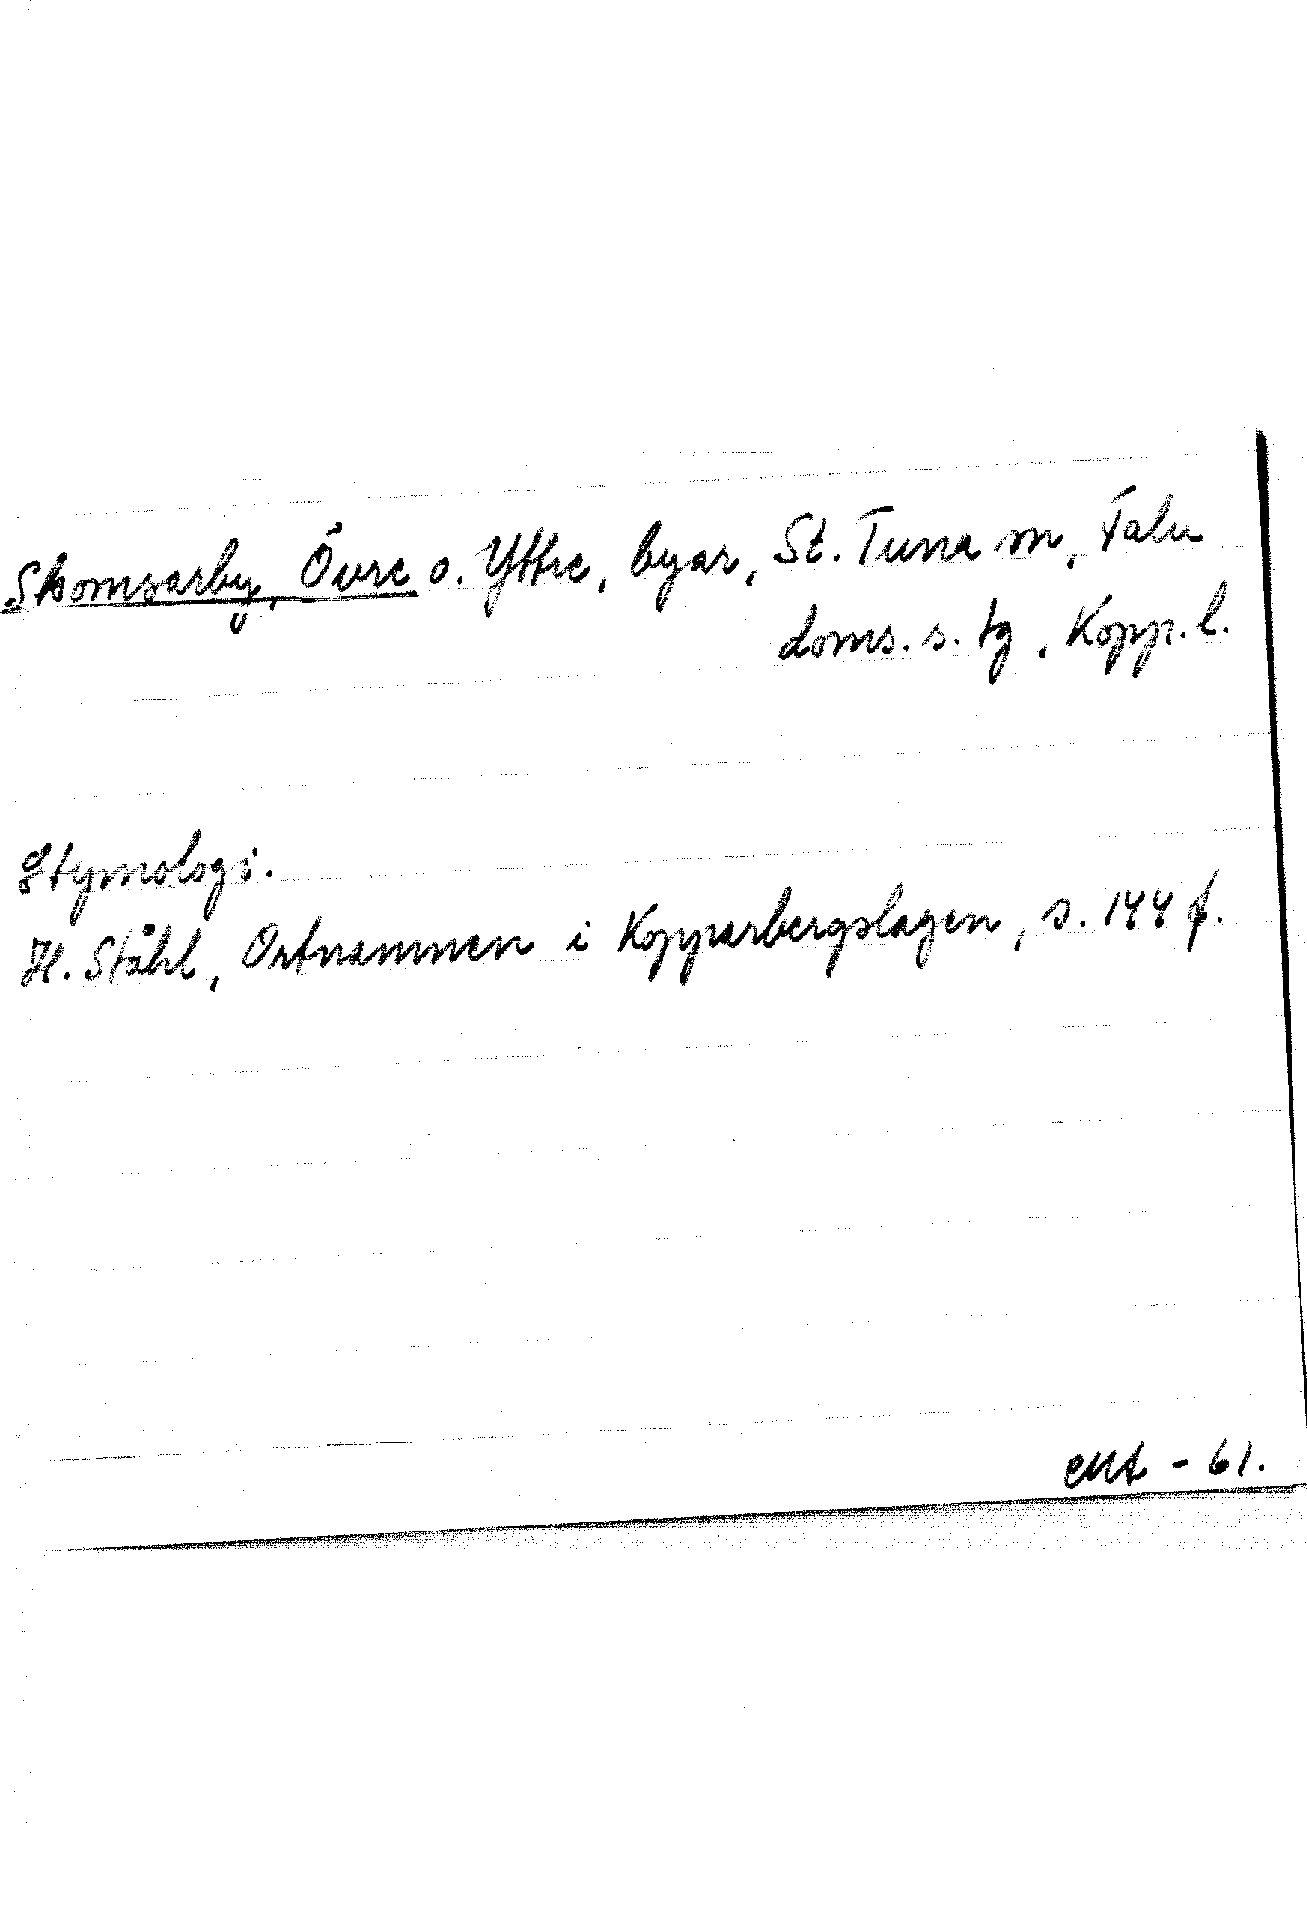 Skomsarby, Övre o. Yttre, byar, St. Tuna sn, Falu
doms. s. tg, Kopp. l.
Etymologi.
H. Ståhl, Ortnamnen i Kopparbergslagen, s. 144 f.
- 61.